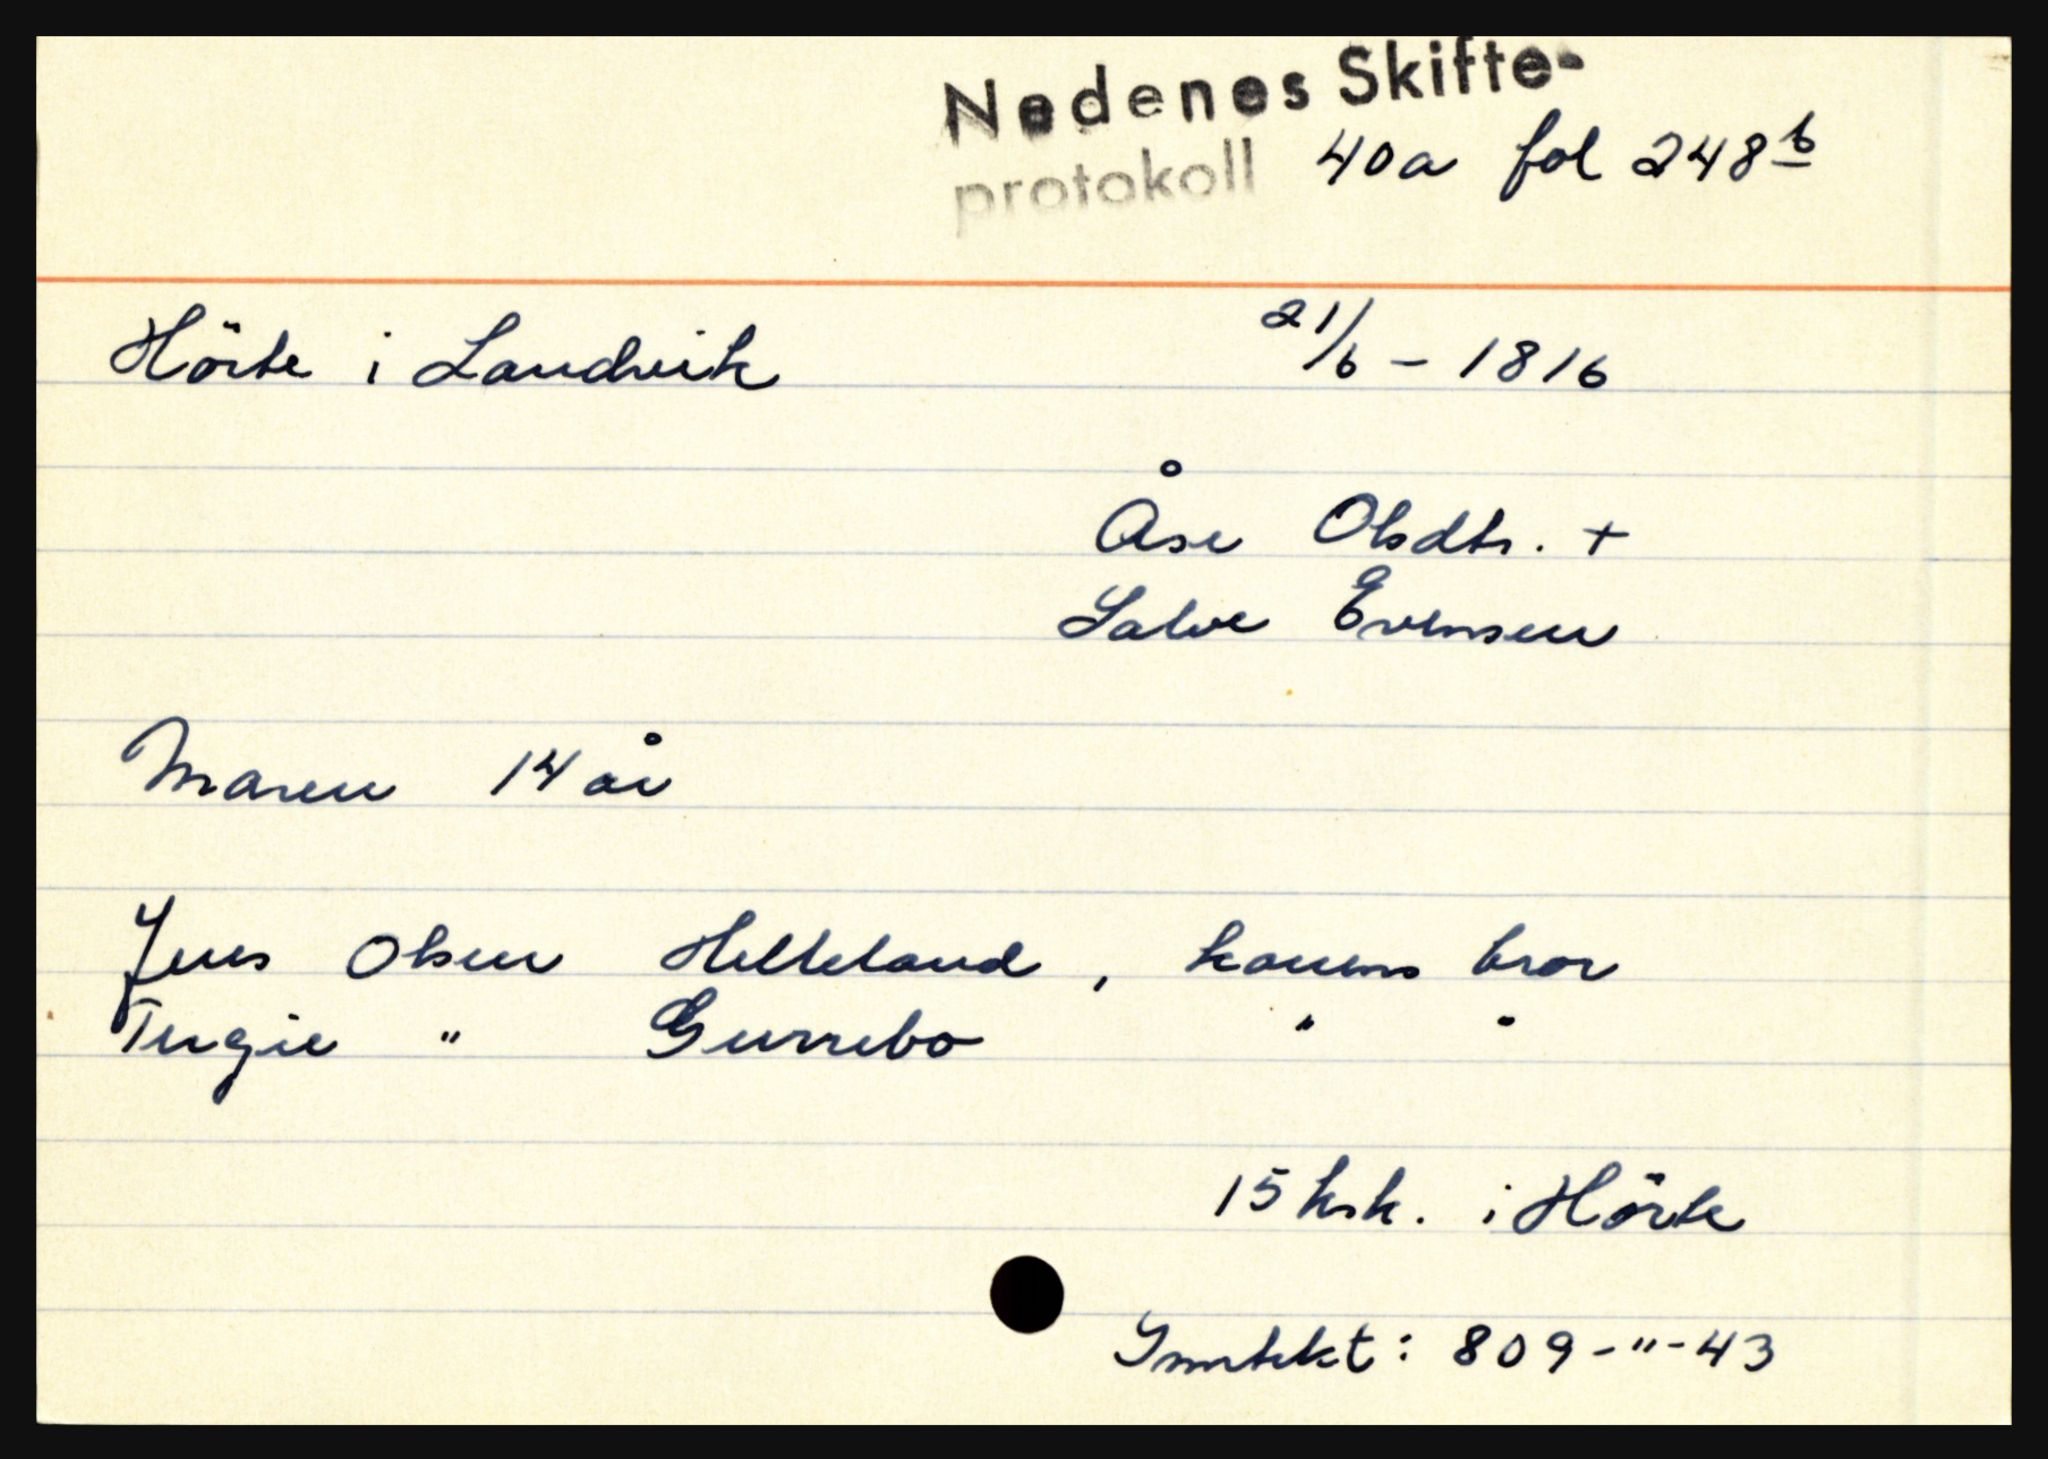 Nedenes Skifte-
protokoll 40a fol 248b
Hörte i Landvik 21/6 - 1816
Åse Olsdtr. +
Salve Evensen
Maren 14 år
Jens Olsen Helleland, konens bror
Tergie " Gurrebo " "
15 ksk. i Hörte
Inntekt: 809-"-43